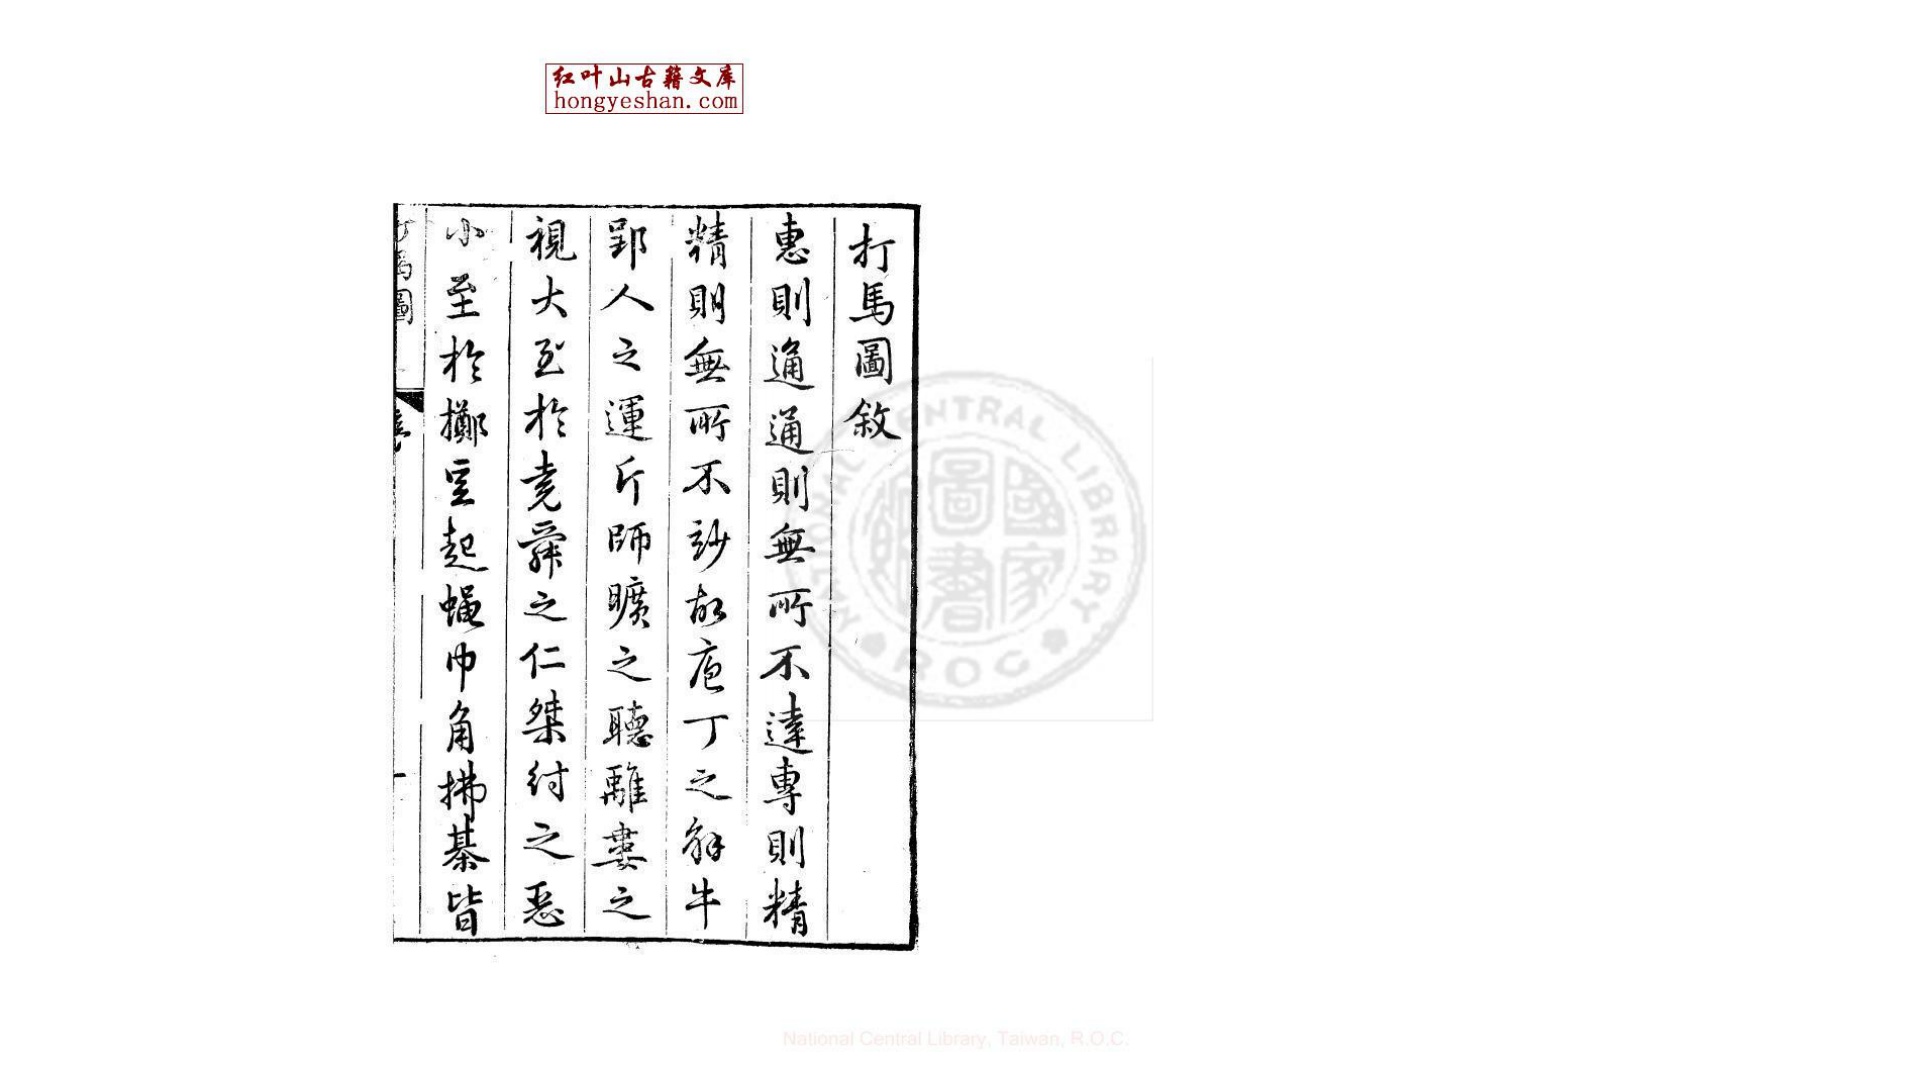 红叶山古籍文库
hongyeshan.com
打馬圖敘
惠則通通則無所不達專則精
精則無所不妙故庖丁之解牛
郢人之運斤師曠之聽離婁之
視大至於堯舜之仁桀紂之惡
小至於擲豆起蠅巾角拂棊皆
馬圖
NATIONAL CENTRAL LIBRARY
ROC
國家圖書
National Central Library, Taiwan, R.O.C.